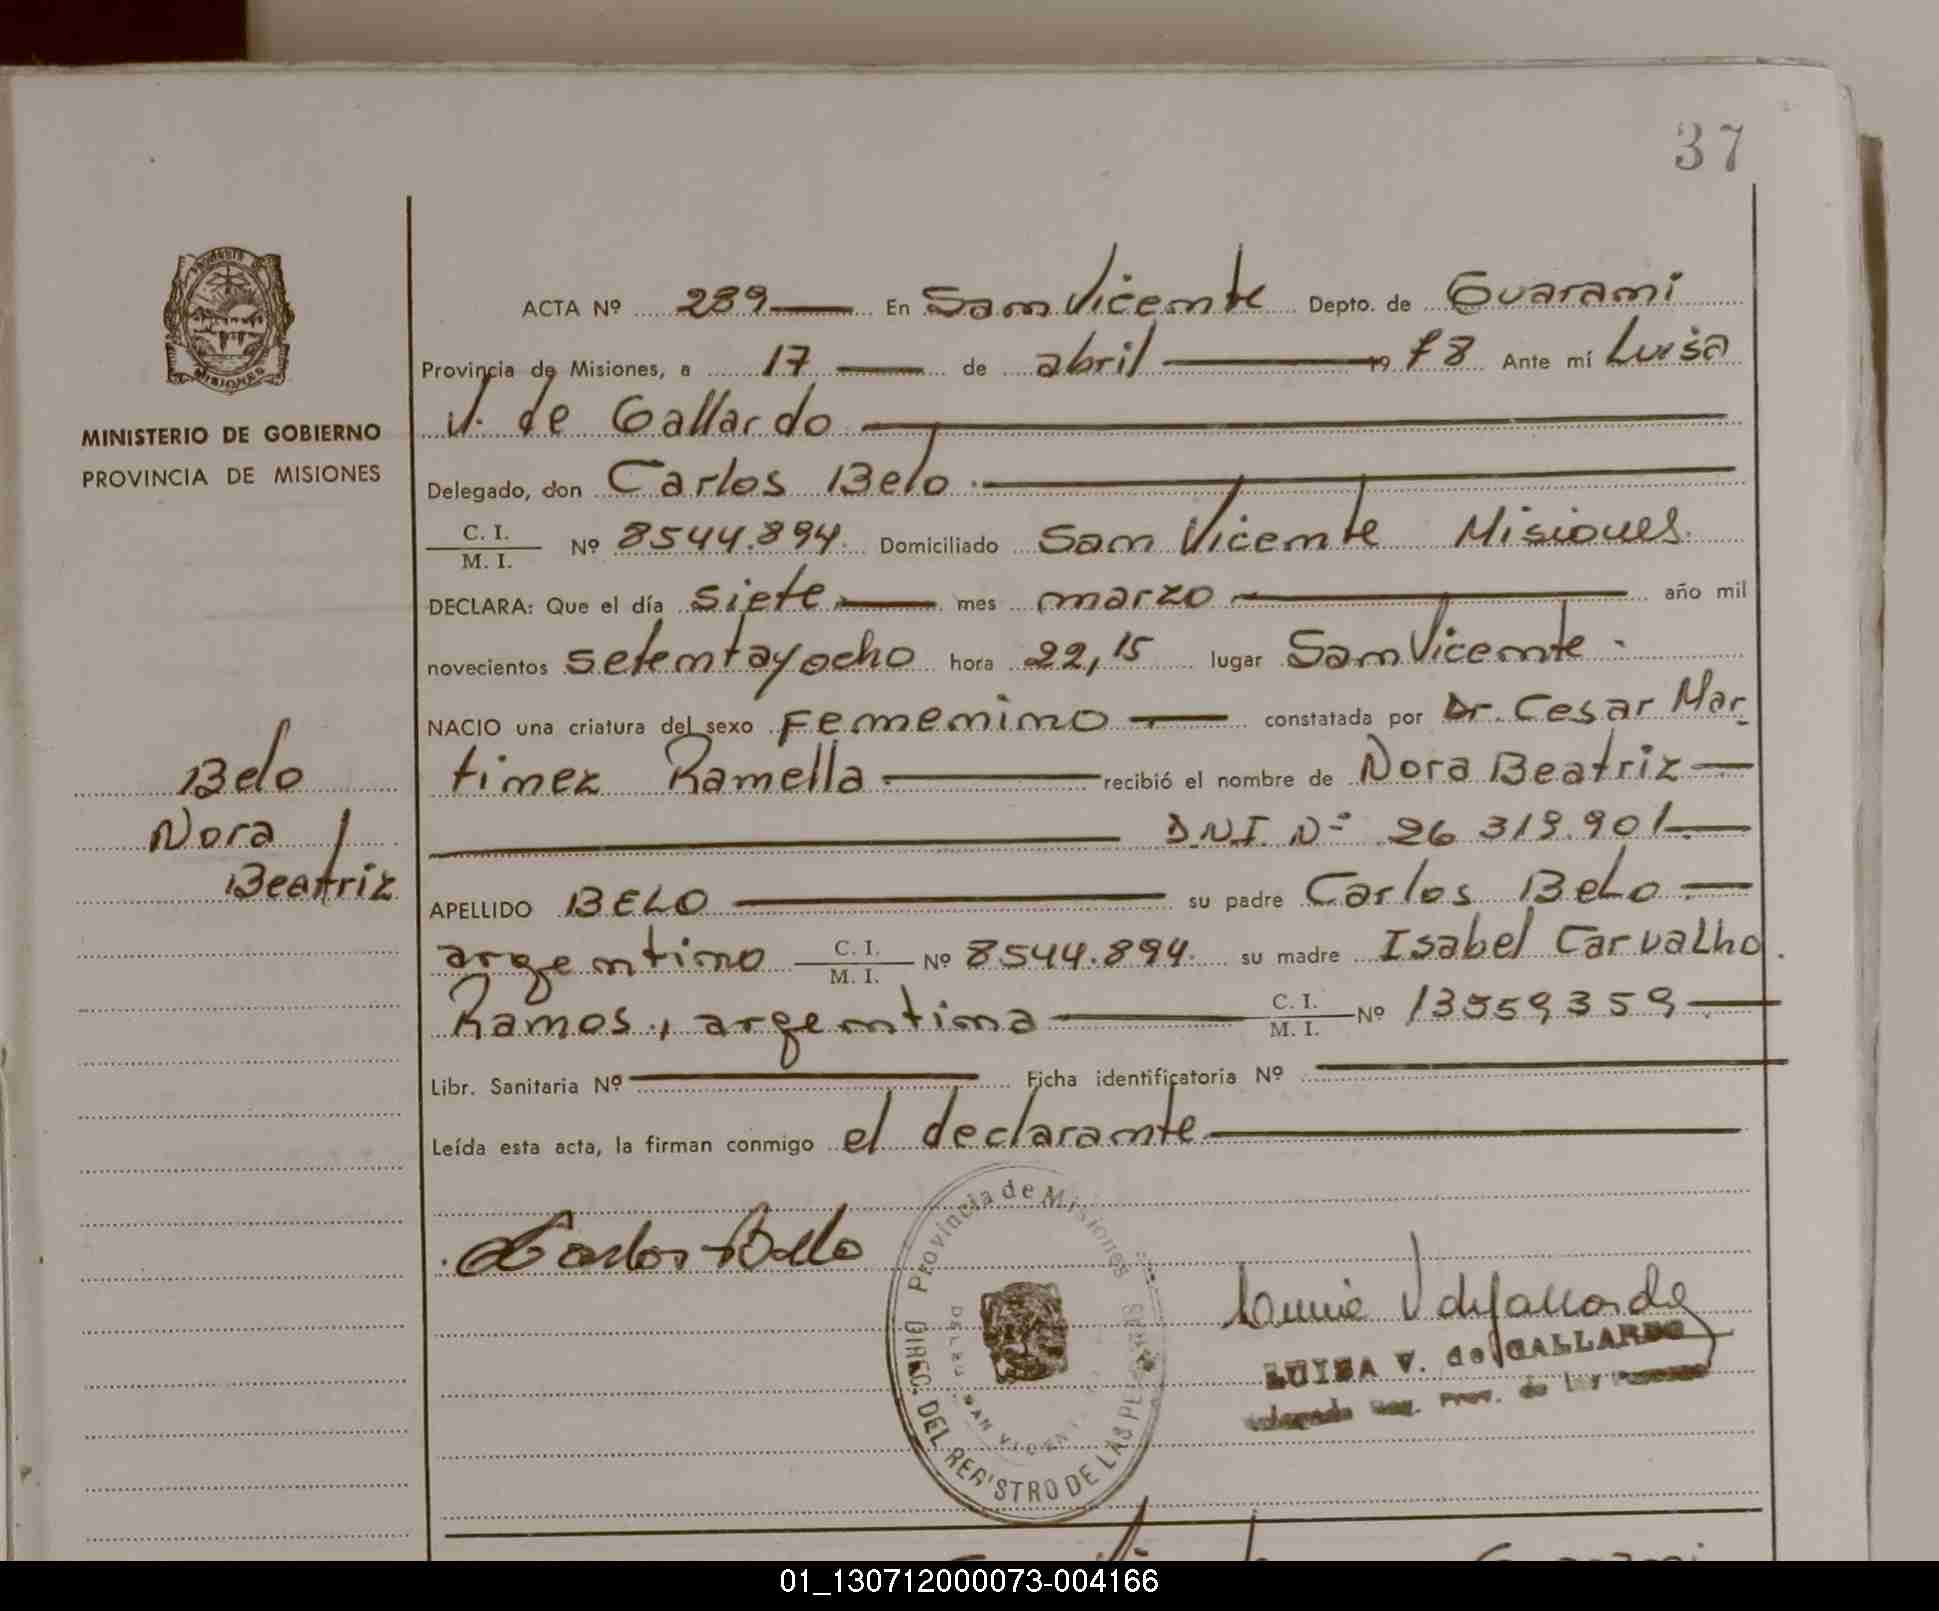 37
ACTA Nº 289 En San Vicente Depto. de Guarani
Provincia de Misiones, a 17 de abril 19 78 Ante mí Luisa
V. de Gallardo
Delegado, don Carlos Belo
C. I.
M. I. Nº 8544.894. Domiciliado San Vicente Misiones.
DECLARA: Que el día siete mes marzo año mil
novecientos setentayocho hora 22,15 lugar San Vicente.
NACIO una criatura del sexo Femenino constatada por Dr. Cesar Mar
tinez Ramella recibió el nombre de Nora Beatriz
D.N.I. Nº 26 319.901
APELLIDO BELO su padre Carlos BeLo
argentino C. I.
M. I. Nº 8544.894. su madre Isabel CarvaLho.
Ramos, argentina C. I.
M. I. Nº 13559359
Libr. Sanitaria Nº Ficha identificatoria Nº
Leída esta acta, la firman conmigo el declarante
Carlos Bello
LUISA V. de GALLARDO
Provincia de Misiones
DIREC. DEL REGISTRO DE LAS PE
MISIONES
MINISTERIO DE GOBIERNO
PROVINCIA DE MISIONES
Belo
Nora
Beatriz
01_130712000073-004166